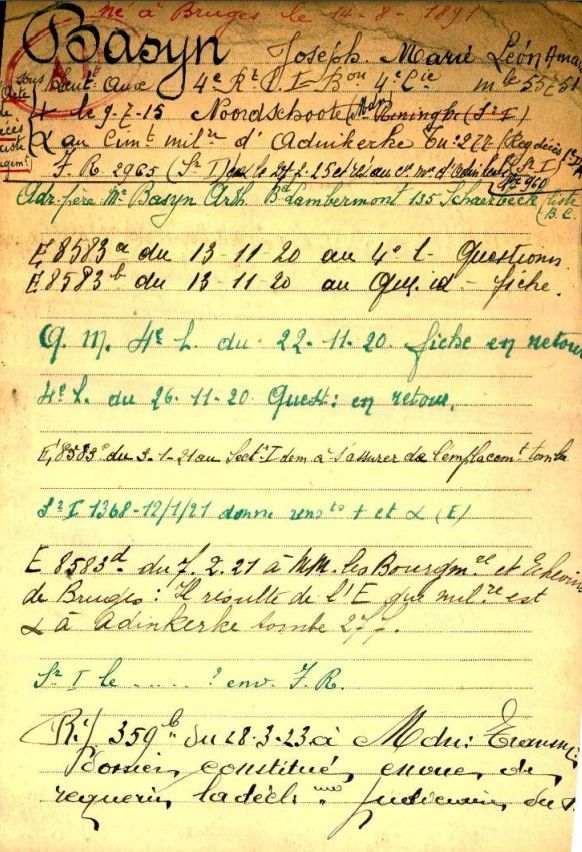 né à Bruges le 14-8-1891
Basyn Joseph Marie Léon Amand
Sous Lieutt Auxe 4e Rt L I Bon 4e Cie mle 55751
+ le 9-7-15 Noordschoote (Mon Reninghe (Sr I)
α au Cimt milre d'Adinkerke Tu: 277 (Reg décès
F. R 2965 (Sr I) le 27-2-25
No 960
Adr. père Mr Basyn Arth. Bd Lambermont 135 Schaerbeek (liste B.C.
E 8583a du 13-11-20 au 4e L. Questionn
E 8583b du 13-11-20 au id - fiche.
Q. M. 4e L. du 22-11-20 fiche en retour
4e L. du 26-11-20 Quest: en retour.
E, 8583c du 3-1-21 au Sectr I dem à s'assurer de l'emplacemt tombe
Sr I 1368-12/1/21 donne rensts + et α (E)
E 8583d du 7.2.21 à MM. les Bourgmre et Echevins
de Bruges: Il résulte de l'E que milre est
α à Adinkerke tombe 277.
Sr I le ..... ? env. F.R.
R./359b du 28-3-23 à M du: Transmis
Dossier constitué en vue de
requérir la décl: judiciaire du